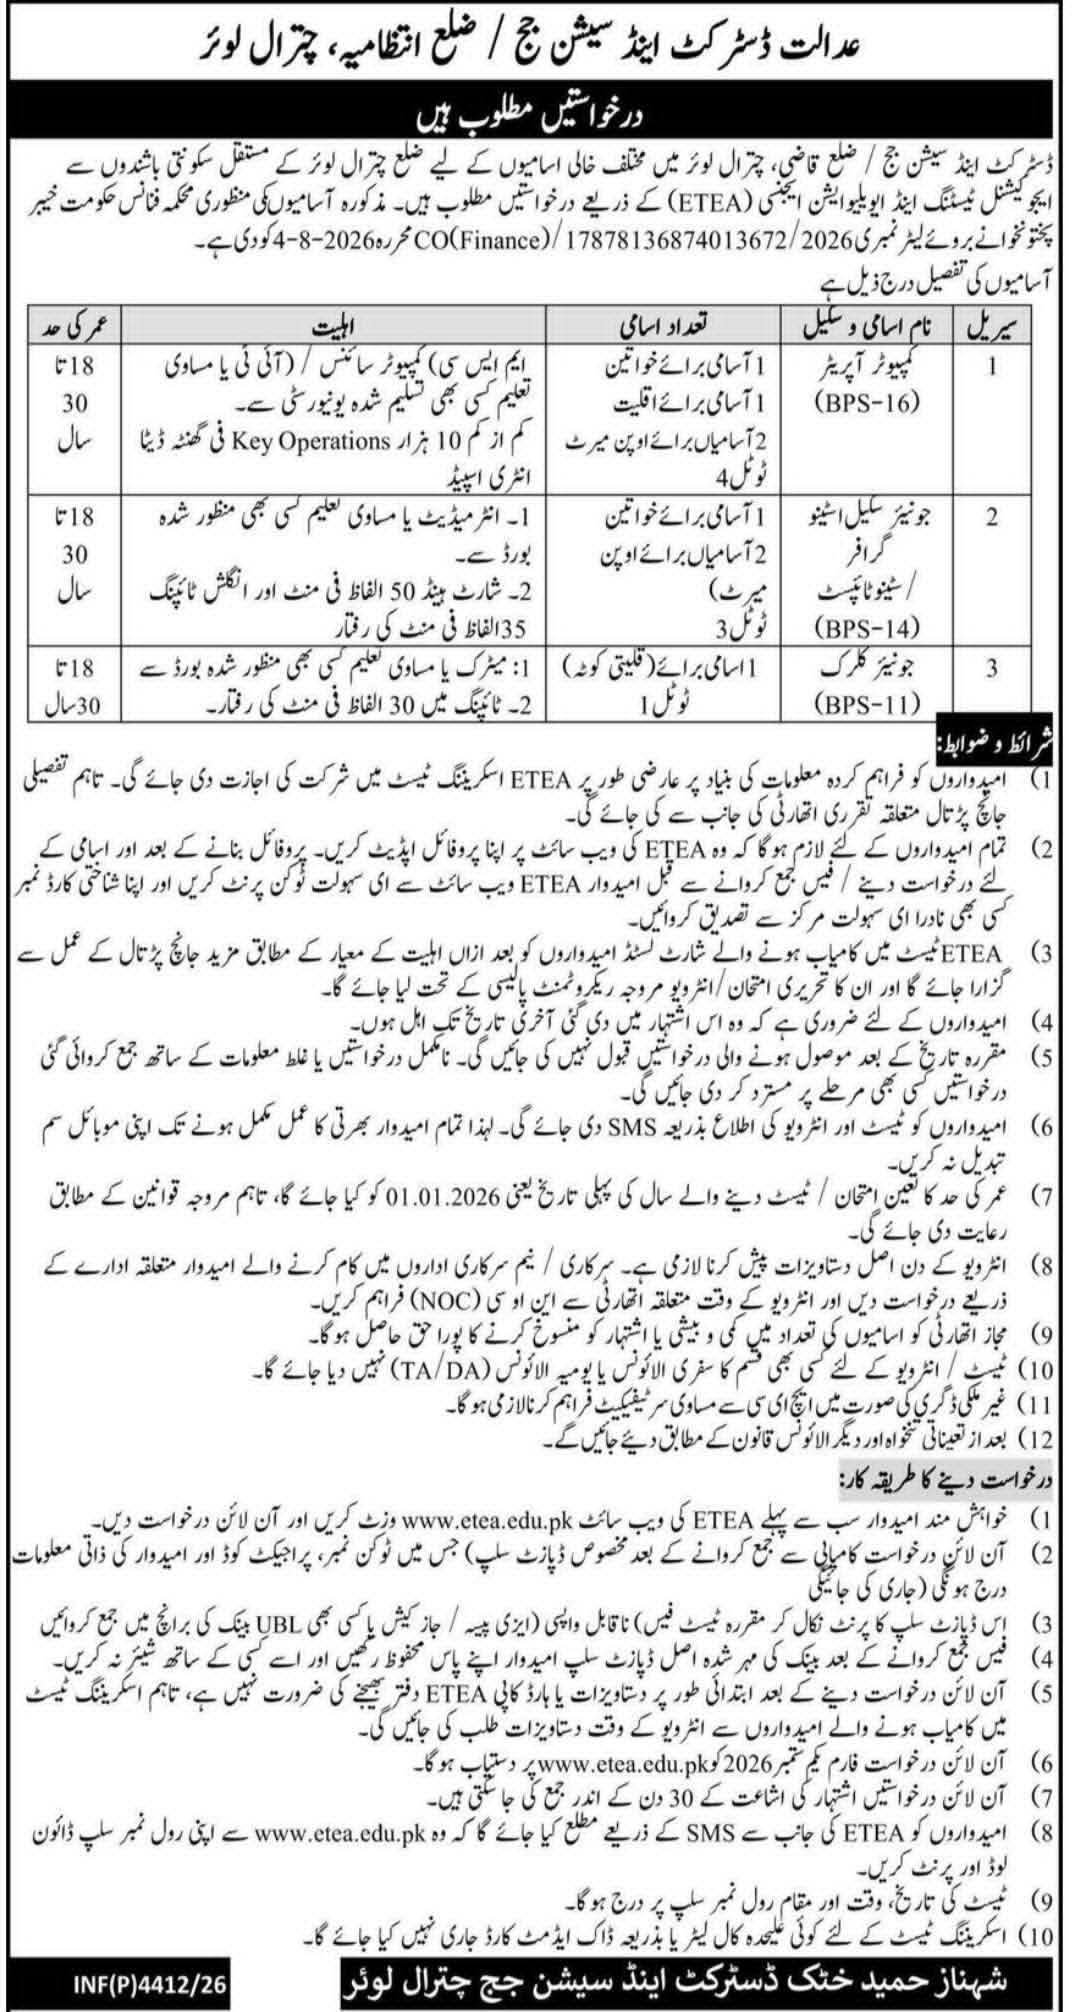 عدالت ڈسٹرکٹ اینڈ سیشن جج / ضلع انتظامیہ، چترال لوئر
درخواستیں مطلوب ہیں
ڈسٹرکٹ اینڈ سیشن جج / ضلع قاضی، چترال لوئر میں مختلف خالی اسامیوں کے لیے ضلع چترال لوئر کے مستقل سکونتی باشندوں سے
ایجوکیشنل ٹیسٹنگ اینڈ ایویلیوایشن ایجنسی (ETEA) کے ذریعے درخواستیں مطلوب ہیں۔ مذکورہ آسامیوں کی منظوری محکمہ فنانس حکومت خیبر
پختونخوا نے بروئے لیٹر نمبری CO(Finance)/17878136874013672/2026 محررہ 4-8-2026 کو دی ہے۔
آسامیوں کی تفصیل درج ذیل ہے
سیریل	نام اسامی و سکیل	تعداد اسامی	اہلیت	عمر کی حد
1	کمپیوٹر آپریٹر	1 آسامی برائے خواتین	ایم ایس سی) کمپیوٹر سائنس / (آئی ٹی یا مساوی	18 تا
(BPS-16)	1 آسامی برائے اقلیت	تعلیم کسی بھی تسلیم شدہ یونیورسٹی سے۔	30
2 آسامیاں برائے اوپن میرٹ	کم از کم 10 ہزار Key Operations فی گھنٹہ ڈیٹا	سال
ٹوٹل 4	انٹری اسپیڈ
2	جونیئر سکیل اسٹینو	1 آسامی برائے خواتین	1۔ انٹرمیڈیٹ یا مساوی تعلیم کسی بھی منظور شدہ	18 تا
گرافر	2 آسامیاں برائے اوپن	بورڈ سے۔	30
/ سٹینو ٹائپسٹ	میرٹ)	2۔ شارٹ ہینڈ 50 الفاظ فی منٹ اور انگلش ٹائپنگ	سال
(BPS-14)	ٹوٹل 3	35 الفاظ فی منٹ کی رفتار
3	جونیئر کلرک	1 اسامی برائے (قلیتی کوٹہ)	1: میٹرک یا مساوی تعلیم کسی بھی منظور شدہ بورڈ سے	18 تا
(BPS-11)	ٹوٹل 1	2۔ ٹائپنگ میں 30 الفاظ فی منٹ کی رفتار۔	30 سال
شرائط و ضوابط:
1) امیدواروں کو فراہم کردہ معلومات کی بنیاد پر عارضی طور پر ETEA اسکریننگ ٹیسٹ میں شرکت کی اجازت دی جائے گی۔ تاہم تفصیلی
جانچ پڑتال متعلقہ تقرری اتھارٹی کی جانب سے کی جائے گی۔
2) تمام امیدواروں کے لئے لازم ہوگا کہ وہ ETEA کی ویب سائٹ پر اپنا پروفائل اپڈیٹ کریں۔ پروفائل بنانے کے بعد اور اسامی کے
لئے درخواست دینے / فیس جمع کروانے سے قبل امیدوار ETEA ویب سائٹ سے ای سہولت ٹوکن پرنٹ کریں اور اپنا شناختی کارڈ نمبر
کسی بھی نادرا ای سہولت مرکز سے تصدیق کروائیں۔
3) ETEA ٹیسٹ میں کامیاب ہونے والے شارٹ لسٹڈ امیدواروں کو بعد ازاں اہلیت کے معیار کے مطابق مزید جانچ پڑتال کے عمل سے
گزارا جائے گا اور ان کا تحریری امتحان/انٹرویو مروجہ ریکروٹمنٹ پالیسی کے تحت لیا جائے گا۔
4) امیدواروں کے لئے ضروری ہے کہ وہ اس اشتہار میں دی گئی آخری تاریخ تک اہل ہوں۔
5) مقررہ تاریخ کے بعد موصول ہونے والی درخواستیں قبول نہیں کی جائیں گی۔ نامکمل درخواستیں یا غلط معلومات کے ساتھ جمع کروائی گئی
درخواستیں کسی بھی مرحلے پر مسترد کر دی جائیں گی۔
6) امیدواروں کو ٹیسٹ اور انٹرویو کی اطلاع بذریعہ SMS دی جائے گی۔ لہذا تمام امیدوار بھرتی کا عمل مکمل ہونے تک اپنی موبائل سم
تبدیل نہ کریں۔
7) عمر کی حد کا تعین امتحان / ٹیسٹ دینے والے سال کی پہلی تاریخ یعنی 01.01.2026 کو کیا جائے گا، تاہم مروجہ قوانین کے مطابق
رعایت دی جائے گی۔
8) انٹرویو کے دن اصل دستاویزات پیش کرنا لازمی ہے۔ سرکاری / نیم سرکاری اداروں میں کام کرنے والے امیدوار متعلقہ ادارے کے
ذریعے درخواست دیں اور انٹرویو کے وقت متعلقہ اتھارٹی سے این او سی (NOC) فراہم کریں۔
9) مجاز اتھارٹی کو اسامیوں کی تعداد میں کمی و بیشی یا اشتہار کو منسوخ کرنے کا پورا حق حاصل ہوگا۔
10) ٹیسٹ / انٹرویو کے لئے کسی بھی قسم کا سفری الائونس یا یومیہ الائونس (TA/DA) نہیں دیا جائے گا۔
11) غیر ملکی ڈگری کی صورت میں ایچ ای سی سے مساوی سرٹیفیکیٹ فراہم کرنا لازمی ہوگا۔
12) بعد از تعیناتی تنخواہ اور دیگر الائونس قانون کے مطابق دیئے جائیں گے۔
درخواست دینے کا طریقہ کار:
1) خواہش مند امیدوار سب سے پہلے ETEA کی ویب سائٹ www.etea.edu.pk وزٹ کریں اور آن لائن درخواست دیں۔
2) آن لائن درخواست کامیابی سے جمع کروانے کے بعد مخصوص ڈپازٹ سلپ) جس میں ٹوکن نمبر، پراجیکٹ کوڈ اور امیدوار کی ذاتی معلومات
درج ہونگی (جاری کی جائیگی
3) اس ڈپازٹ سلپ کا پرنٹ نکال کر مقررہ ٹیسٹ فیس) ناقابل واپسی (ایزی پیسہ / جاز کیش یا کسی بھی UBL بینک کی برانچ میں جمع کروائیں
4) فیس جمع کروانے کے بعد بینک کی مہر شدہ اصل ڈپازٹ سلپ امیدوار اپنے پاس محفوظ رکھیں اور اسے کسی کے ساتھ شیئر نہ کریں۔
5) آن لائن درخواست دینے کے بعد ابتدائی طور پر دستاویزات یا ہارڈ کاپی ETEA دفتر بھیجنے کی ضرورت نہیں ہے، تاہم اسکریننگ ٹیسٹ
میں کامیاب ہونے والے امیدواروں سے انٹرویو کے وقت دستاویزات طلب کی جائیں گی۔
6) آن لائن درخواست فارم یکم ستمبر 2026 کو www.etea.edu.pk پر دستیاب ہوگا۔
7) آن لائن درخواستیں اشتہار کی اشاعت کے 30 دن کے اندر جمع کی جا سکتی ہیں۔
8) امیدواروں کو ETEA کی جانب سے SMS کے ذریعے مطلع کیا جائے گا کہ وہ www.etea.edu.pk سے اپنی رول نمبر سلپ ڈائون
لوڈ اور پرنٹ کریں۔
9) ٹیسٹ کی تاریخ، وقت اور مقام رول نمبر سلپ پر درج ہوگا۔
10) اسکریننگ ٹیسٹ کے لئے کوئی علیحدہ کال لیٹر یا بذریعہ ڈاک ایڈمٹ کارڈ جاری نہیں کیا جائے گا۔
شہناز حمید خٹک ڈسٹرکٹ اینڈ سیشن جج چترال لوئر
INF(P)4412/26